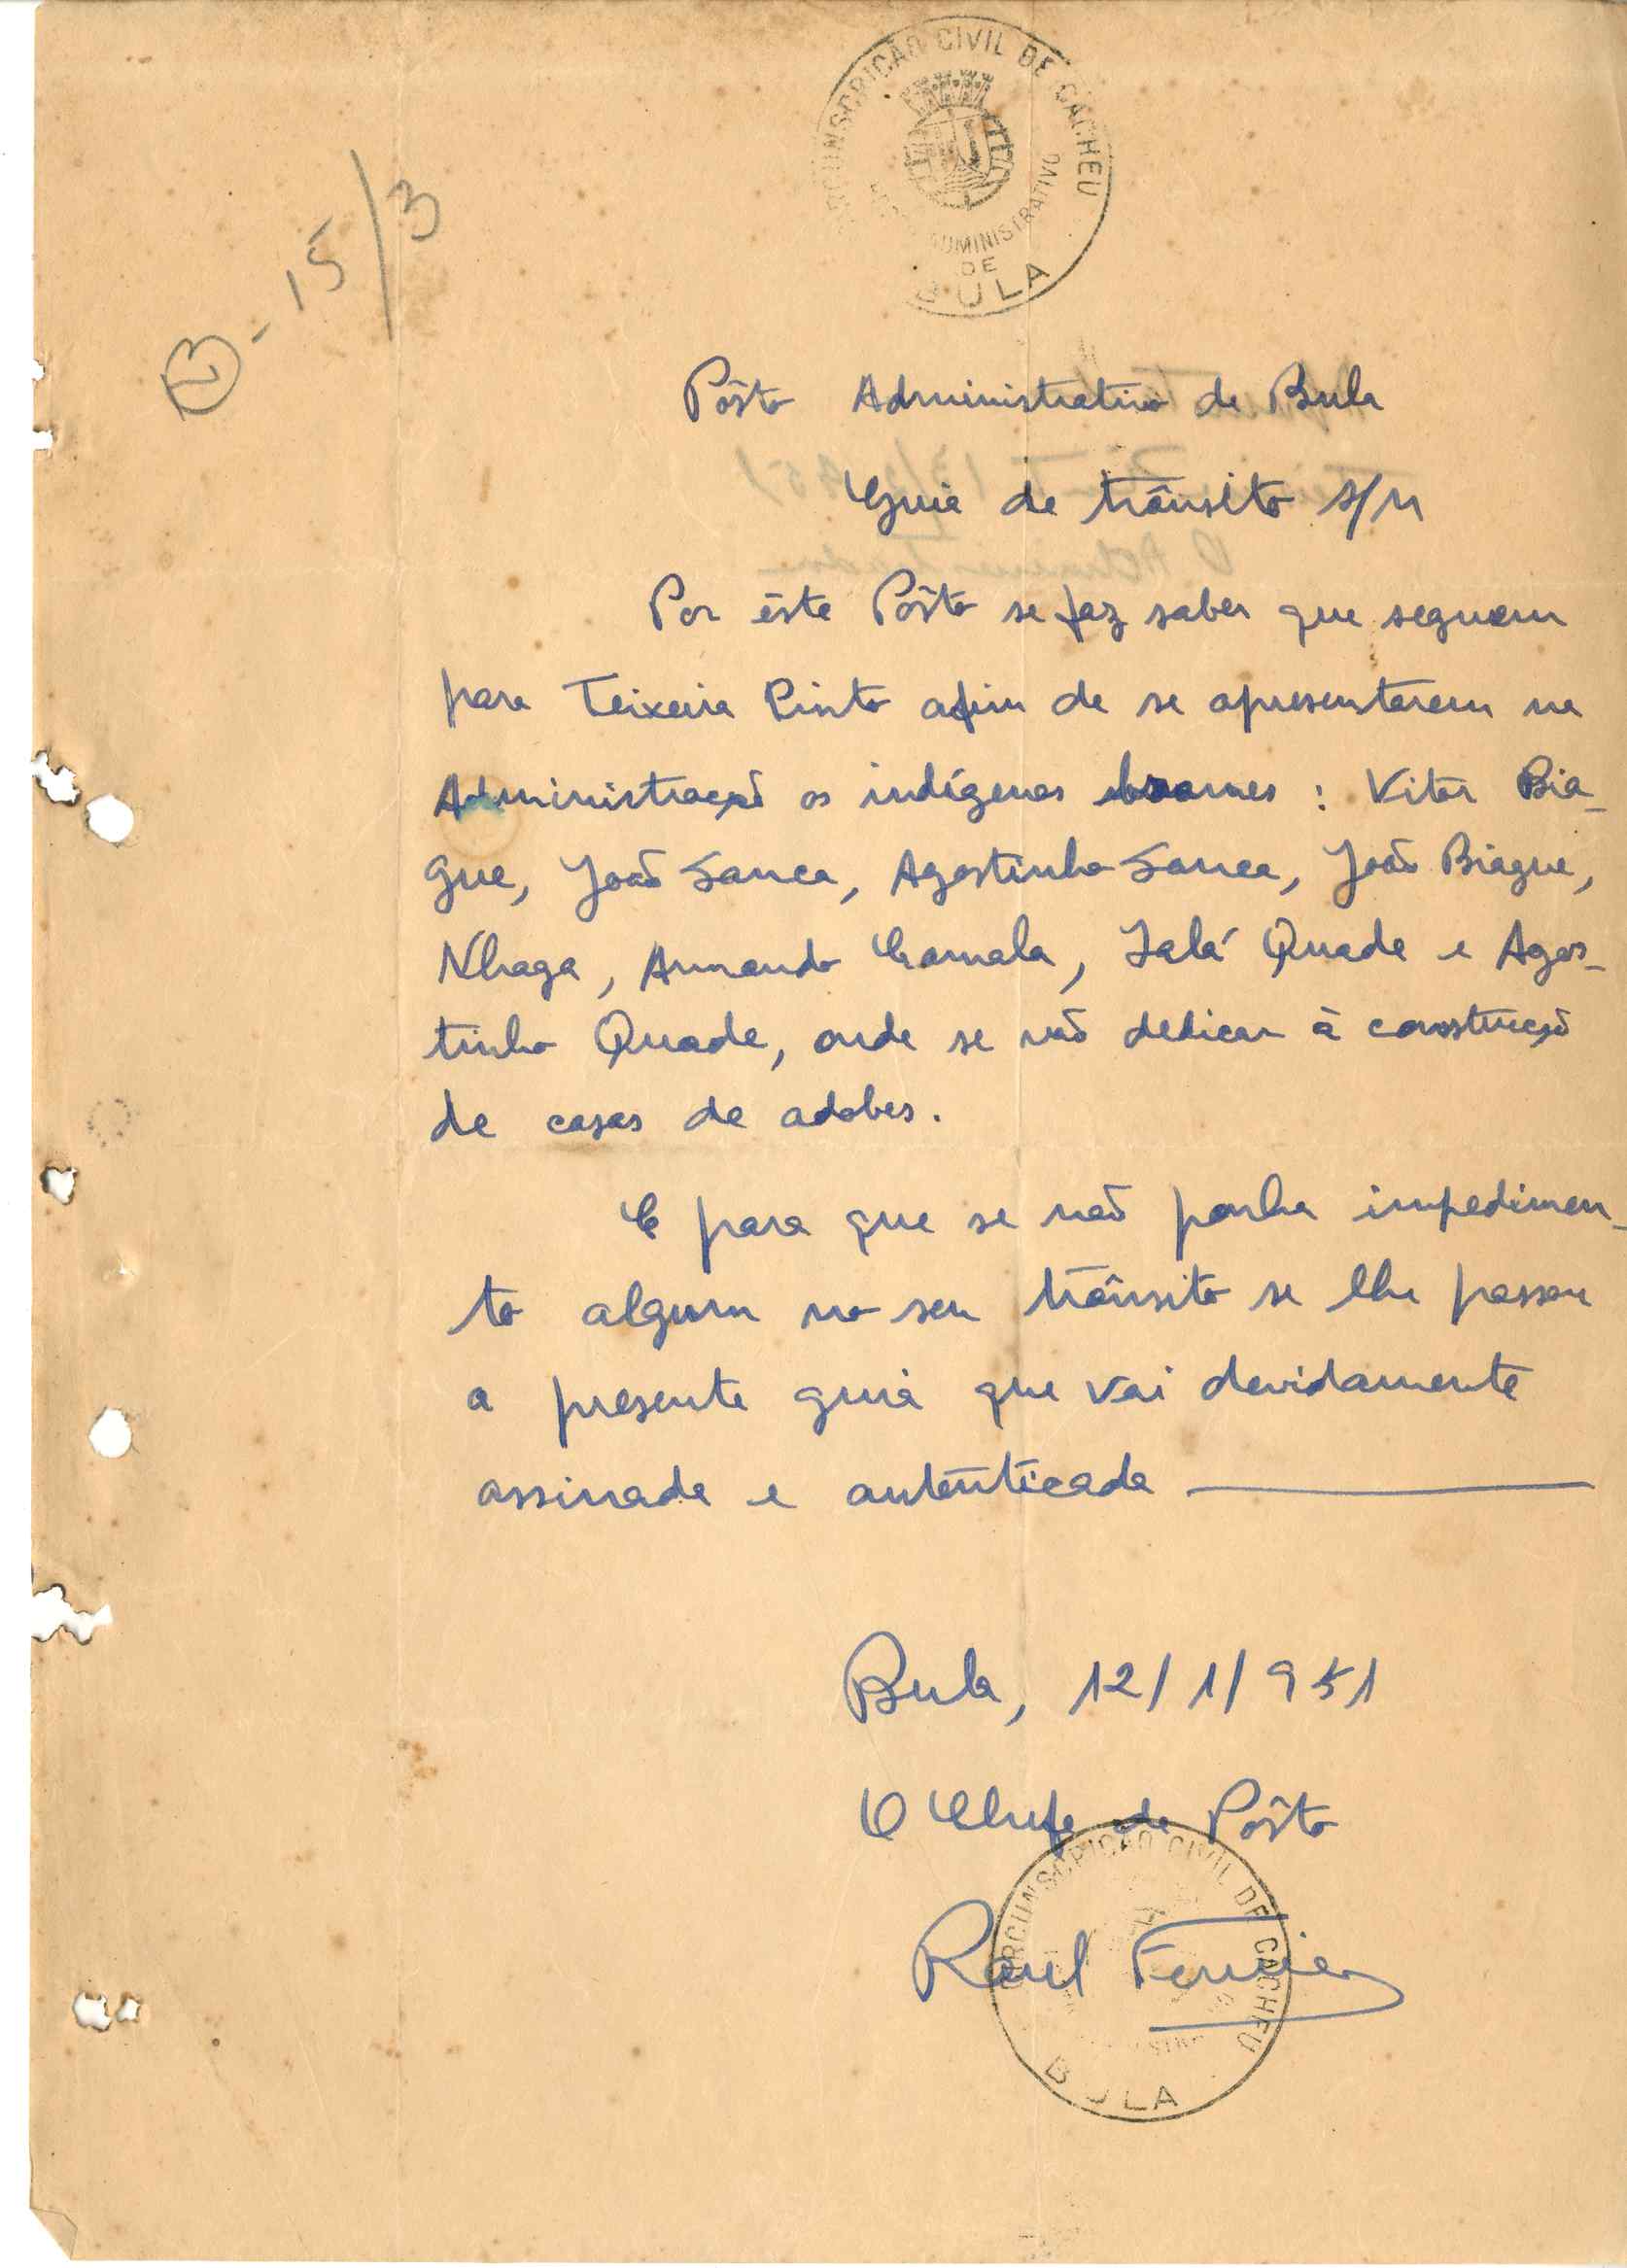 CIRCUNSCRIÇÃO CIVIL DE CACHEU
ADMINISTRATIVO
DE
BULA
B - 15/3
Pôsto Administrativo de Bula
Guia de trânsito s/n
Por êste Pôsto se faz saber que seguem
para Teixeira Pinto afim de se apresentarem na
Administração os indígenas brames : Vitor Bia-
gue, João Sanca, Agostinho Sanca, João Biague,
Nhaga, Armando Camala, Ialá Quade e Agos-
tinho Quade, onde se vão dedicar à construção
de casas de adobes.
E para que se não ponha impedimen-
to algum no seu trânsito se lhe passou
a presente guia que vai devidamente
assinada e autênticada
Bula, 12/1/951
O Chefe de Pôsto
Raul
CIRCUNSCRIÇÃO CIVIL DE CACHEU
BULA